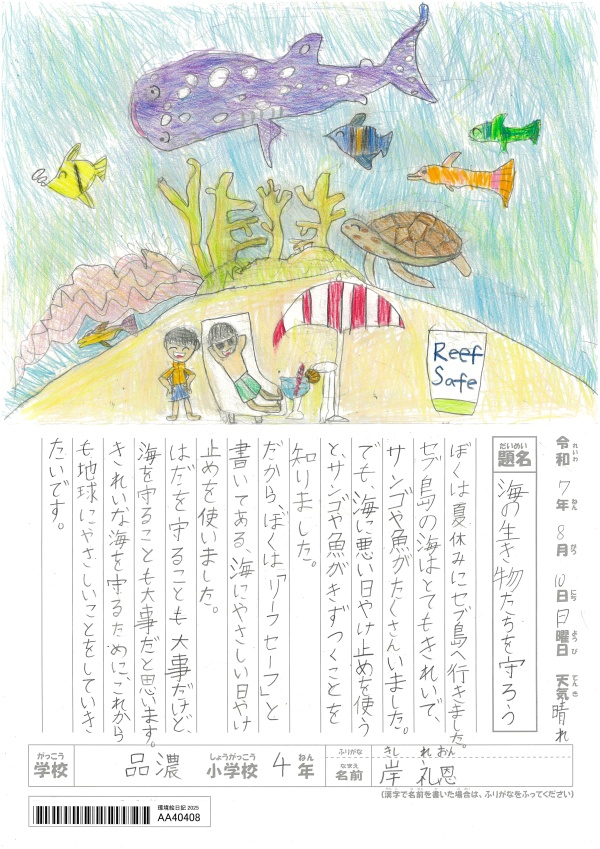 Reef
Safe
令和7年8月10日日曜日 天気晴れ
れいわ ねん がつ にち ようび てんき
だいめい
題名 海の生き物たちを守ろう
ぼくは夏休みにセブ島へ行きました。
セブ島の海はとてもきれいで、
サンゴや魚がたくさんいました。
でも、海に悪い日やけ止めを使う
と、サンゴや魚がきずつくことを
知りました。
だから、ぼくは「リーフセーフ」と
書いてある、海にやさしい日やけ
止めを使いました。
はだを守ることも大事だけど、
海を守ることも大事だと思います。
きれいな海を守るために、これから
も地球にやさしいことをしていき
たいです。
がっこう しょうがっこう ねん
学校 品濃 小学校 4年
ふりがな きし れおん
なまえ
名前 岸 礼恩
(漢字で名前を書いた場合は、ふりがなをふってください)
環境絵日記 2025
AA40408